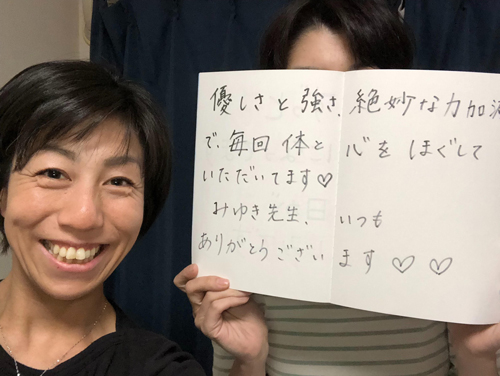 優しさと強さ、絶妙な力加減
で、毎回体と心をほぐして
いただいてます♡
みゆき先生、いつも
ありがとうございます♡♡